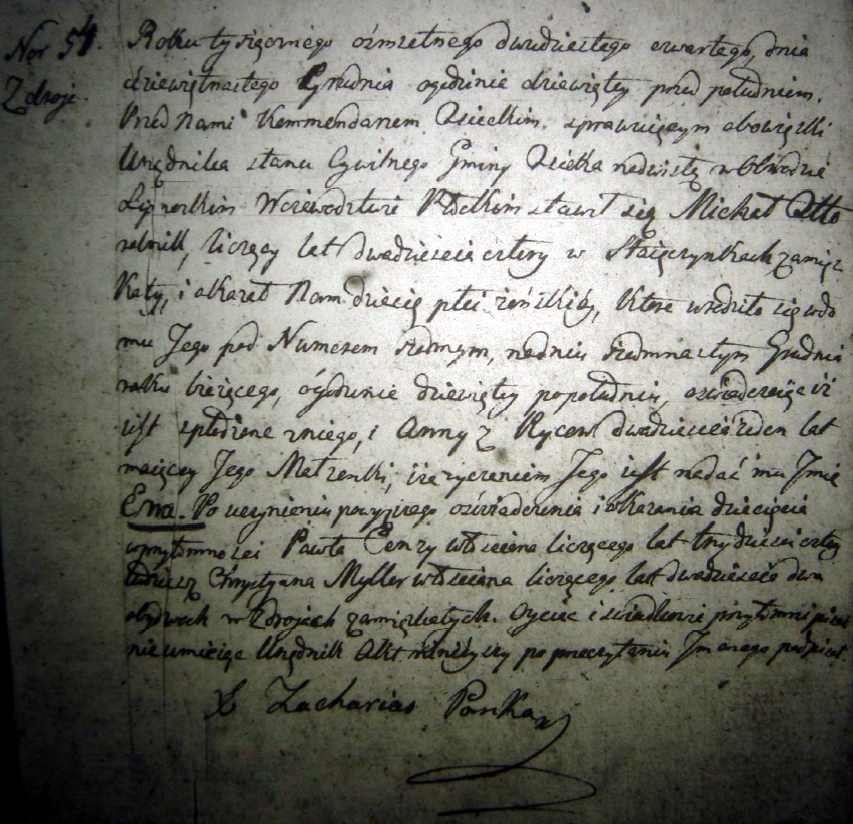 Nor 54.
Zdroje.
Roku tysiącznego ośmsetnego dwudziestego czwartego, dnia
dziewiętnastego Grudnia ogodzinie dziewiątey przed południem.
Przed Nami Kommendarzem Osieckim sprawuiącym obowiązki
Urzędnika stanu Cywilnego Gminy Osieka nadwisłą w Obwodzie
Lipnoskim Woiewodztwie Płockim stawił się Michał Otto
rolnik, liczący lat dwadzieścia cztery w zamiesz
kały, i okazał Nam dziecię płci żeńskiéy, które urodziło się wdo
mu Jego pod Numerem siódmym, nadniu siedmnastym Grudnia
roku bieżącego, ogodzinie dziewiątey popołudniu, oświadczaiąc iż
iest spłodzone zniego, i Anny z dwadzieścia ieden lat
maiącey Jego Małżonki, iże życzeniem Jego iest nadać mu Jmie
Ewa. Po uczynieniu powyższego oświadczenia i okazania dziecięcia
wprzytomności Pawła włościana liczącego lat trzydzieści cztery
tudzież Chrystyana Myller włościana liczącego lat dwadzieścia dwa
obydwoch w Zdrojach zamieszkałych. Oyciec i świadkowie przytomni pisać
nieumieią Urzędnik Akt ninieyszy po przeczytaniu podpisał.
X Zacharias